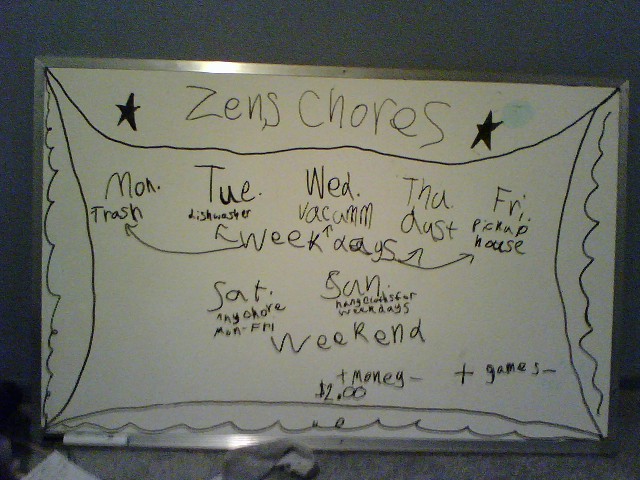 Zens Chores
Mon. Tue. Wed. Thu. Fri.
Trash dishwasher vacumm dust pickup house
Weekdays
Sat. Sun.
Any chore Mon-Fri
hang for weekdays
Weekend
+ Money - + games -
$2.00